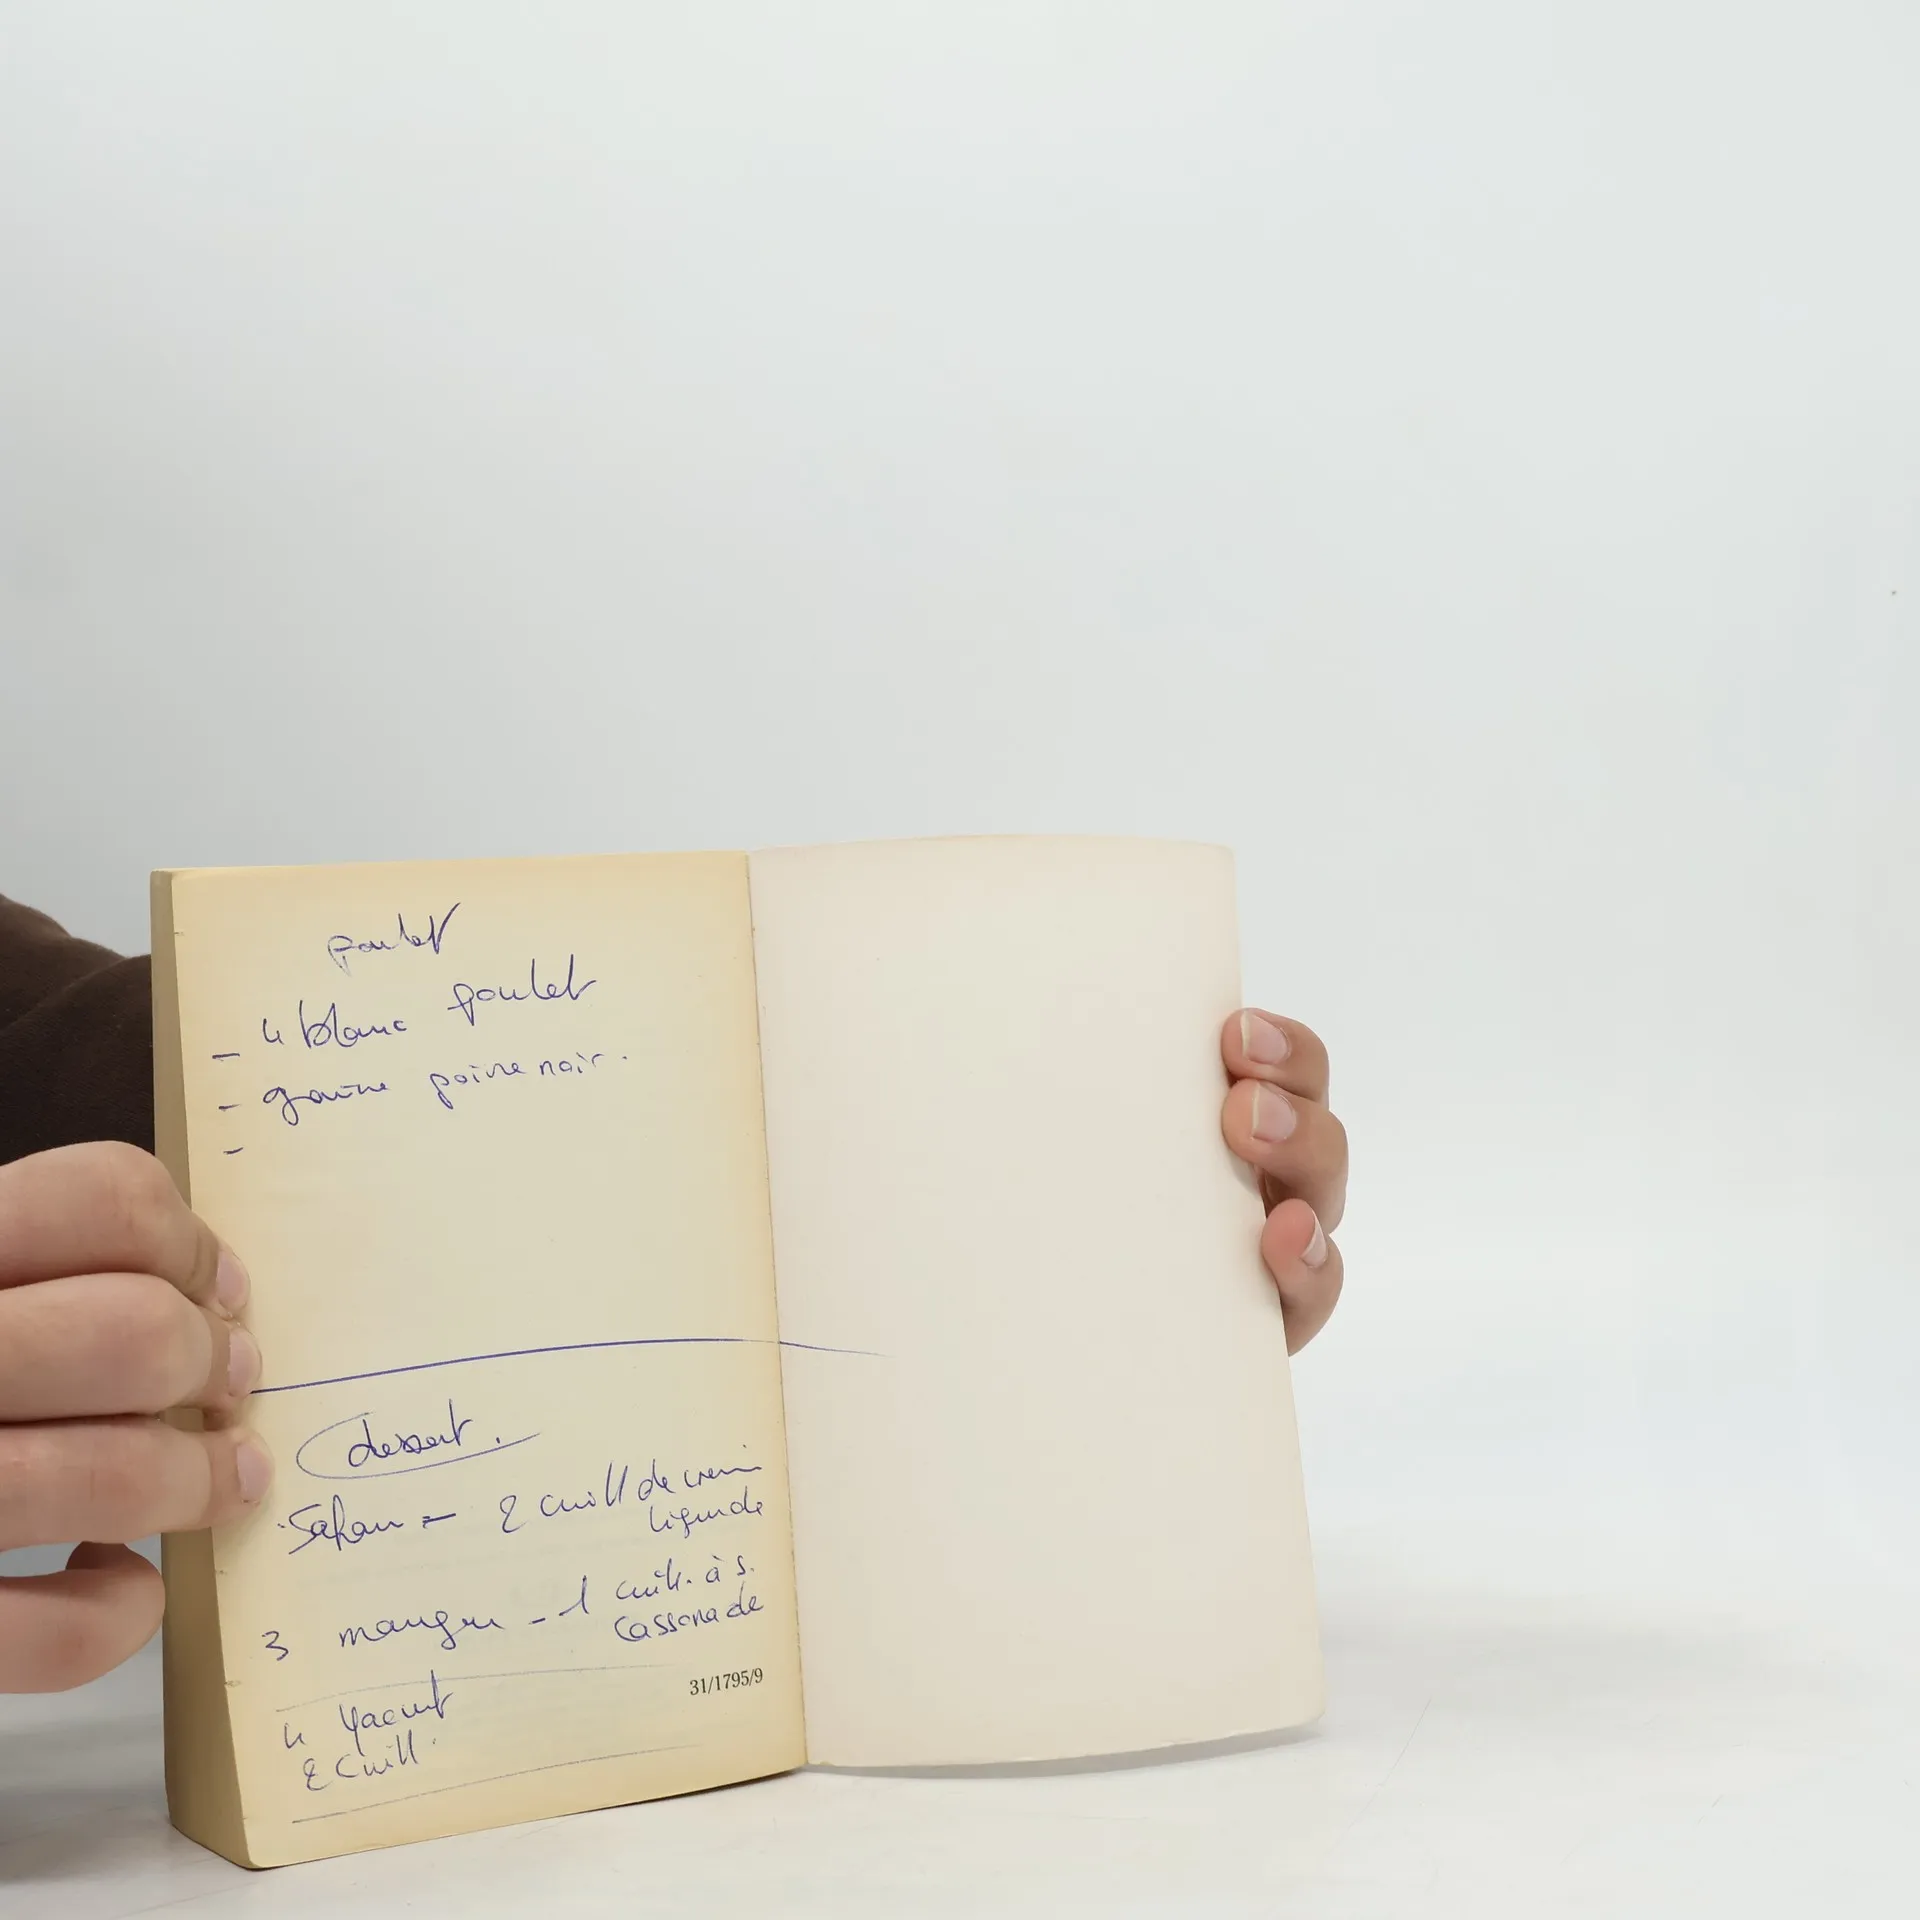 poulet
- 4 blanc poulet
- graine poivre noir.
-
dessert.
Safran = 2 cuill de crem
liquide
3 mangue - 1 cuill. à s.
cassonade
31/1795/9
4 Yaourt
2 Cuill.